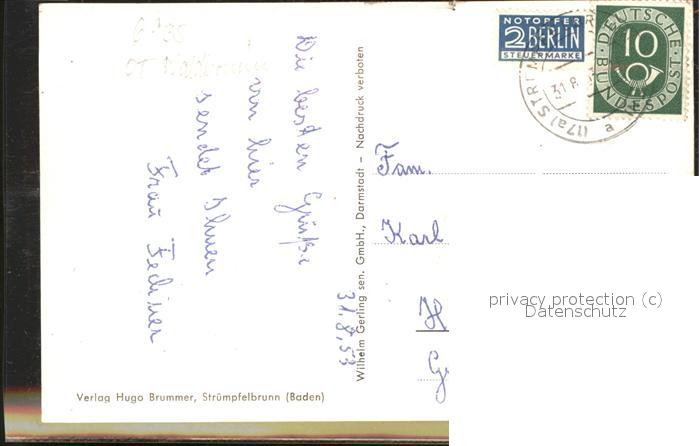 6930
OT Waldbrunn
Die besten Grüße
von hier
sendet Ihnen
Frau Fechner
31.8.53
Wilhelm Gerling sen. GmbH., Darmstadt – Nachdruck verboten
NOTOPFER
2 BERLIN
STEUERMARKE
DEUTSCHE
10
BUNDESPOST
(17a) STRÜM
31.8.
a
Fam.
Karl
privacy protection (c)
Datenschutz
Verlag Hugo Brummer, Strümpfelbrunn (Baden)